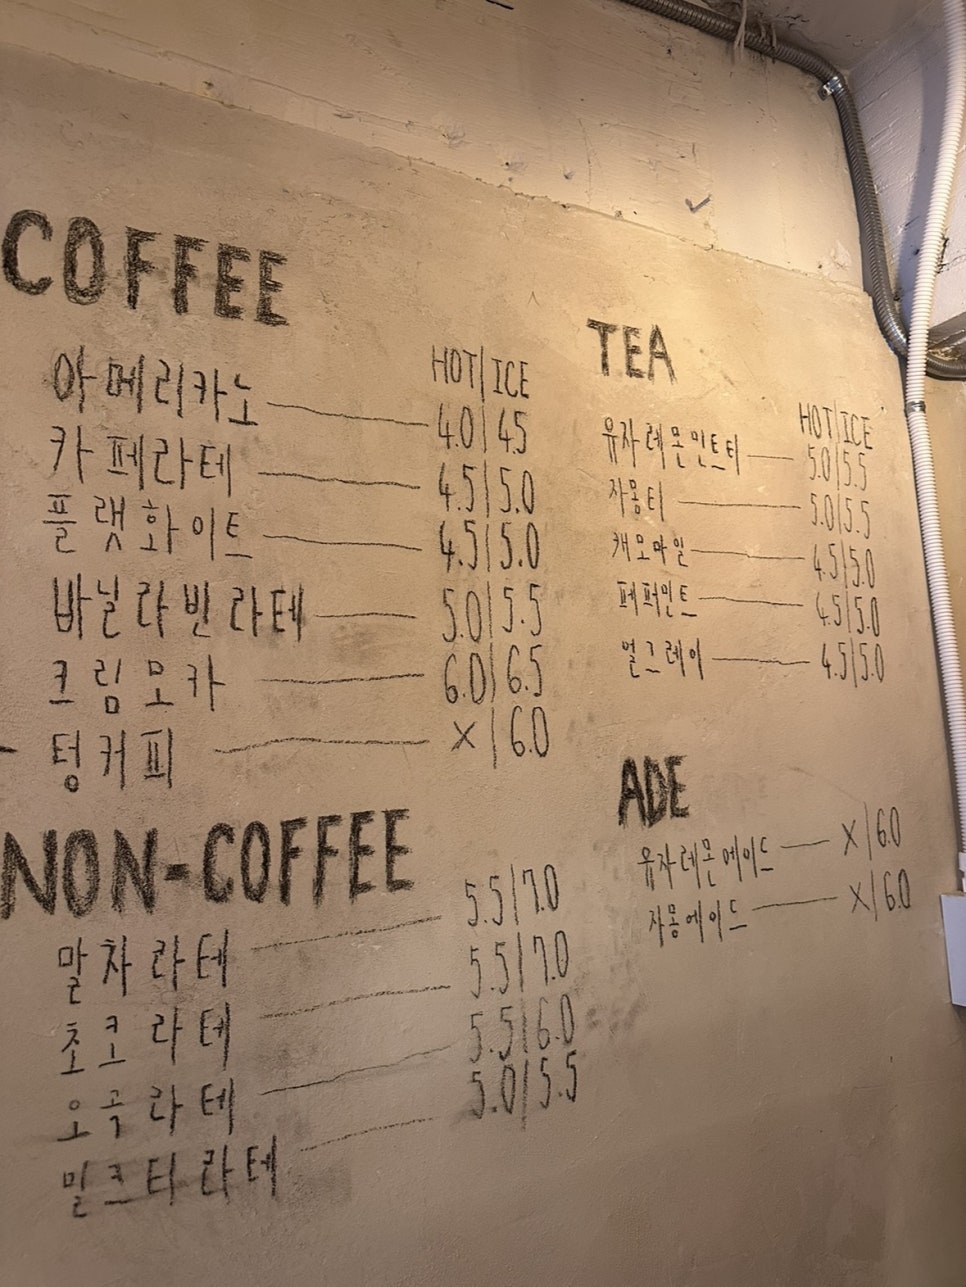 COFFEE
HOT|ICE
아메리카노 4.0|4.5
카페라테 4.5|5.0
플랫화이트 4.5|5.0
바닐라빈라테 5.0|5.5
크림모카 6.0|6.5
텅커피 X|6.0
NON-COFFEE
말차라테 5.5|7.0
초코라테 5.5|7.0
오곡라테 5.5|6.0
밀크티라테 5.0|5.5
TEA
HOT|ICE
유자레몬민트티 5.0|5.5
자몽티 5.0|5.5
캐모마일 4.5|5.0
페퍼민트 4.5|5.0
얼그레이 4.5|5.0
ADE
유자레몬에이드 X|6.0
자몽에이드 X|6.0